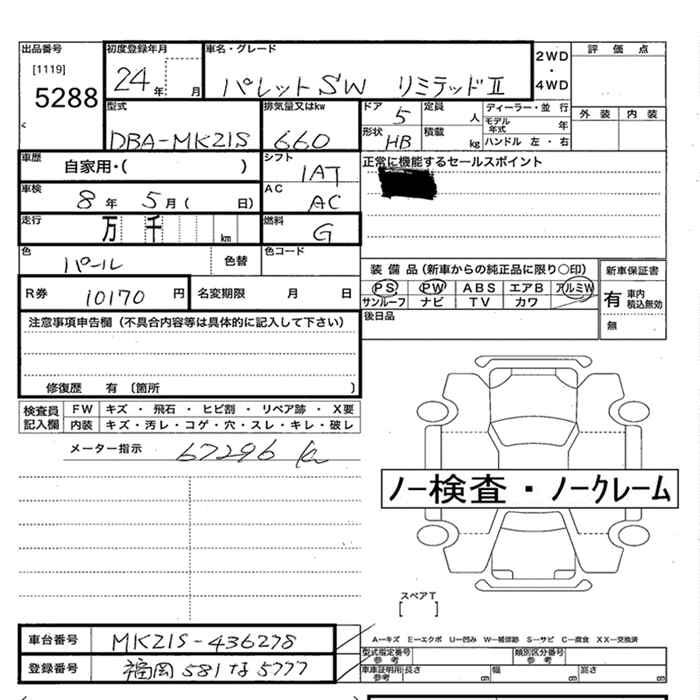 出品番号 初度登録年月 車名・グレード 2WD ・ 4WD 評価点
[1119]
5288
24年 月 パレットSW リミテッドⅡ
外装 内装
型式 排気量又はkw ドア 5 定員 人 ディーラー・並行
DBA-MK21S 660 形状 HB 積載 kg モデル年式 年
ハンドル 左・右
車歴 自家用・( ) シフト 1AT 正常に機能するセールスポイント
車検 8年 5月( 日) AC AC
走行 万 千 km 燃料 G
色 パール 色替 色コード
装備品(新車からの純正品に限り○印) 新車保証書
PS PW ABS エアB アルミW
サンルーフ ナビ TV カワ
有 車内積込無効
無
R券 10170円 名変期限 月 日
後日品
注意事項申告欄(不具合内容等は具体的に記入して下さい)
修復歴 有 〔箇所 〕
検査員記入欄 FW キズ・飛石・ヒビ割・リペア跡・X要
内装 キズ・汚レ・コゲ・穴・スレ・キレ・破レ
メーター指示 67296 km
ノー検査・ノークレーム
スペアT
[ ]
A-キズ E-エクボ U-凹み W-補修跡 S-サビ C-腐食 XX-交換済
車台番号 MK21S-436278
型式指定番号 参考 類別区分番号 参考
登録番号 福岡 581 な 5777
車庫証明用 参考 長さ cm 幅 cm 高さ cm